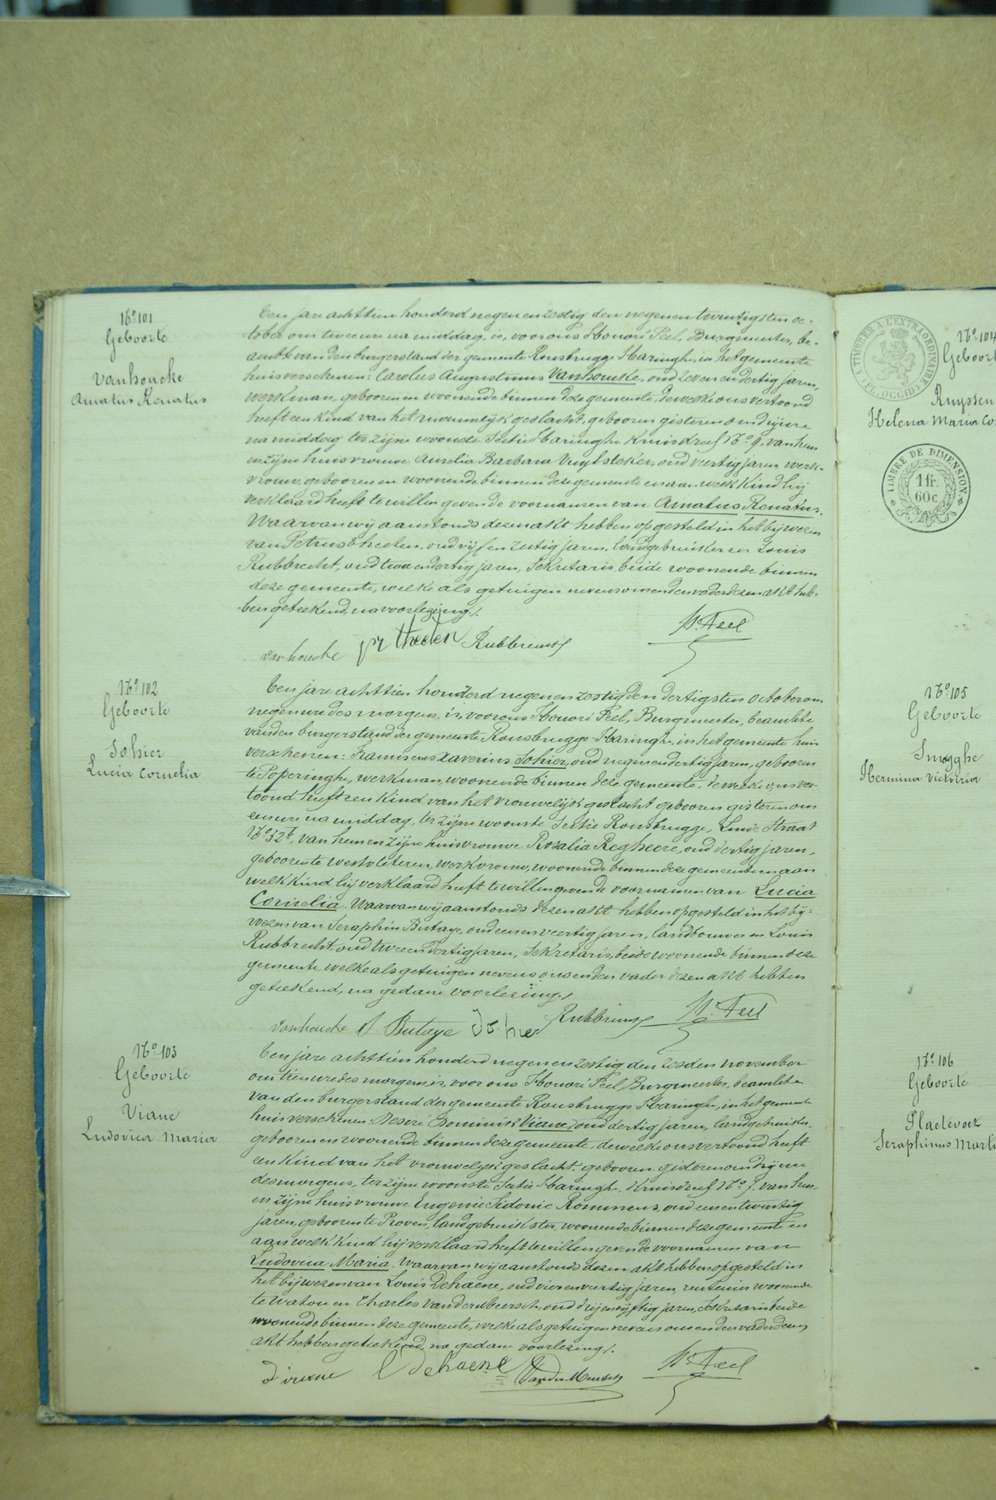 N° 101
Geboorte
Vanhoucke
Amatus Renatus
Een jare achttien honderd negen en zestig den negen en twintigsten oc-
tober om twee ure na middag, is, voor ons Honoré Feel, Burgmeester, be-
ambte van den burgerstand der gemeente Rousbrugge Haringhe, in het gemeente
huis verschenen: Carolus Augustinus Vanhoucke, oud zeven en dertig jaren,
werkman, geboren en woonende binnen deze gemeente, dewelke ons vertoond
heeft een kind van het mannelijk geslacht, geboren gisteren om drij ure
na middag ter zijne woonste Sectie Haringhe Kruisdreef N° 9, van hem
en zijne huisvrouwe Aurelia Barbara Vuylsteker, oud veertig jaren, werk-
vrouw, geboren en woonende binnen deze gemeente en aan welk kind hij
verklaard heeft te willen geven de voornamen van Amatus Renatus.
Waarvan wij aanstonds dezen akt hebben opgesteld in het bijwezen
van Petrus Theeten, oud vijf en zestig jaren, landgebruiker en Louis
Rubbrecht, oud twee en dertig jaren, Sekretaris beide woonende binnen
deze gemeente, welke als getuigen nevens ons en den vader dezen akt heb-
ben geteekend, na voorlezing ./.
vanhoucke pr theeten Rubbrecht H. Feel
N° 102
Geboorte
Sohier
Lucia Cornelia
Een jare achttien honderd negen en zestig den dertigsten October om
negen ure des morgens, is, voor ons Honoré Feel, Burgmeester, beambte
van den burgerstand der gemeente Rousbrugge Haringhe, in het gemeente huis
verschenen: Franciscus Xaverius Sohier, oud negen en dertig jaren, geboren
te Poperinghe, werkman, woonende binnen deze gemeente, dewelke ons ver-
toond heeft een kind van het vrouwelijk geslacht geboren gisteren om
een ure na middag, ter zijne woonste Sectie Rousbrugge, Straat
N° 32, van hem en zijne huisvrouwe Rosalia Regheere, oud dertig jaren,
geboren te westvleteren, werkvrouw, woonende binnen deze gemeente en aan
welk kind hij verklaard heeft te willen geven de voornamen van Lucia
Cornelia. Waarvan wij aanstonds dezen akt hebben opgesteld in het bij-
wezen van Seraphin Butaye, oud een en veertig jaren, landbouwer en Louis
Rubbrecht, oud twee en dertig jaren, Sekretaris, beide woonende binnen deze
gemeente welke als getuigen nevens ons en den vader dezen akt hebben
geteekend, na gedane voorlezing ./.
vanhoucke S Butaye Sohier Rubbrecht H. Feel
N° 103
Geboorte
Viane
Ludovica Maria
Een jare achttien honderd negen en zestig den zesden november
om tien ure des morgens, is, voor ons Honoré Feel, Burgmeester, beambte
van den burgerstand der gemeente Rousbrugge Haringhe, in het gemeente
huis verschenen Desiré Dominik Viane, oud dertig jaren, landgebruiker,
geboren en woonende binnen deze gemeente, dewelke ons vertoond heeft
een kind van het vrouwelijk geslacht, geboren gisteren om drij ure
des morgens, ter zijne woonste Sectie Haringhe, Kruisdreef N° 7, van hem
en zijne huisvrouwe Eugenie Sidonie Rommens, oud een en twintig
jaren, geboren te Proven, landgebruikster, woonende binnen deze gemeente en
aan welk kind hij verklaard heeft te willen geven de voornamen van
Ludovica Maria. Waarvan wij aanstonds dezen akt hebben opgesteld in
het bijwezen van Louis Dehaene, oud vier en veertig jaren, rentenier woonende
te Watou en Charles Vandermeersch, oud drij en vijftig jaren,
woonende binnen deze gemeente, welke als getuigen nevens ons en den vader dezen
akt hebben geteekend, na gedane voorlezing ./.
D viane L Dehaene Vandermeersch H. Feel
TIMBRE A L'EXTRAORDINAIRE
FL. OCCID.
N° 104
Geboort
Ruyssen
Helena Maria Co
TIMBRE DE DIMENSION
1 fr.
60 c.
N° 105
Geboorte
Snogghe
Hermina Victoria
N° 106
Geboorte
Plaetevoet
Seraphinus Marti